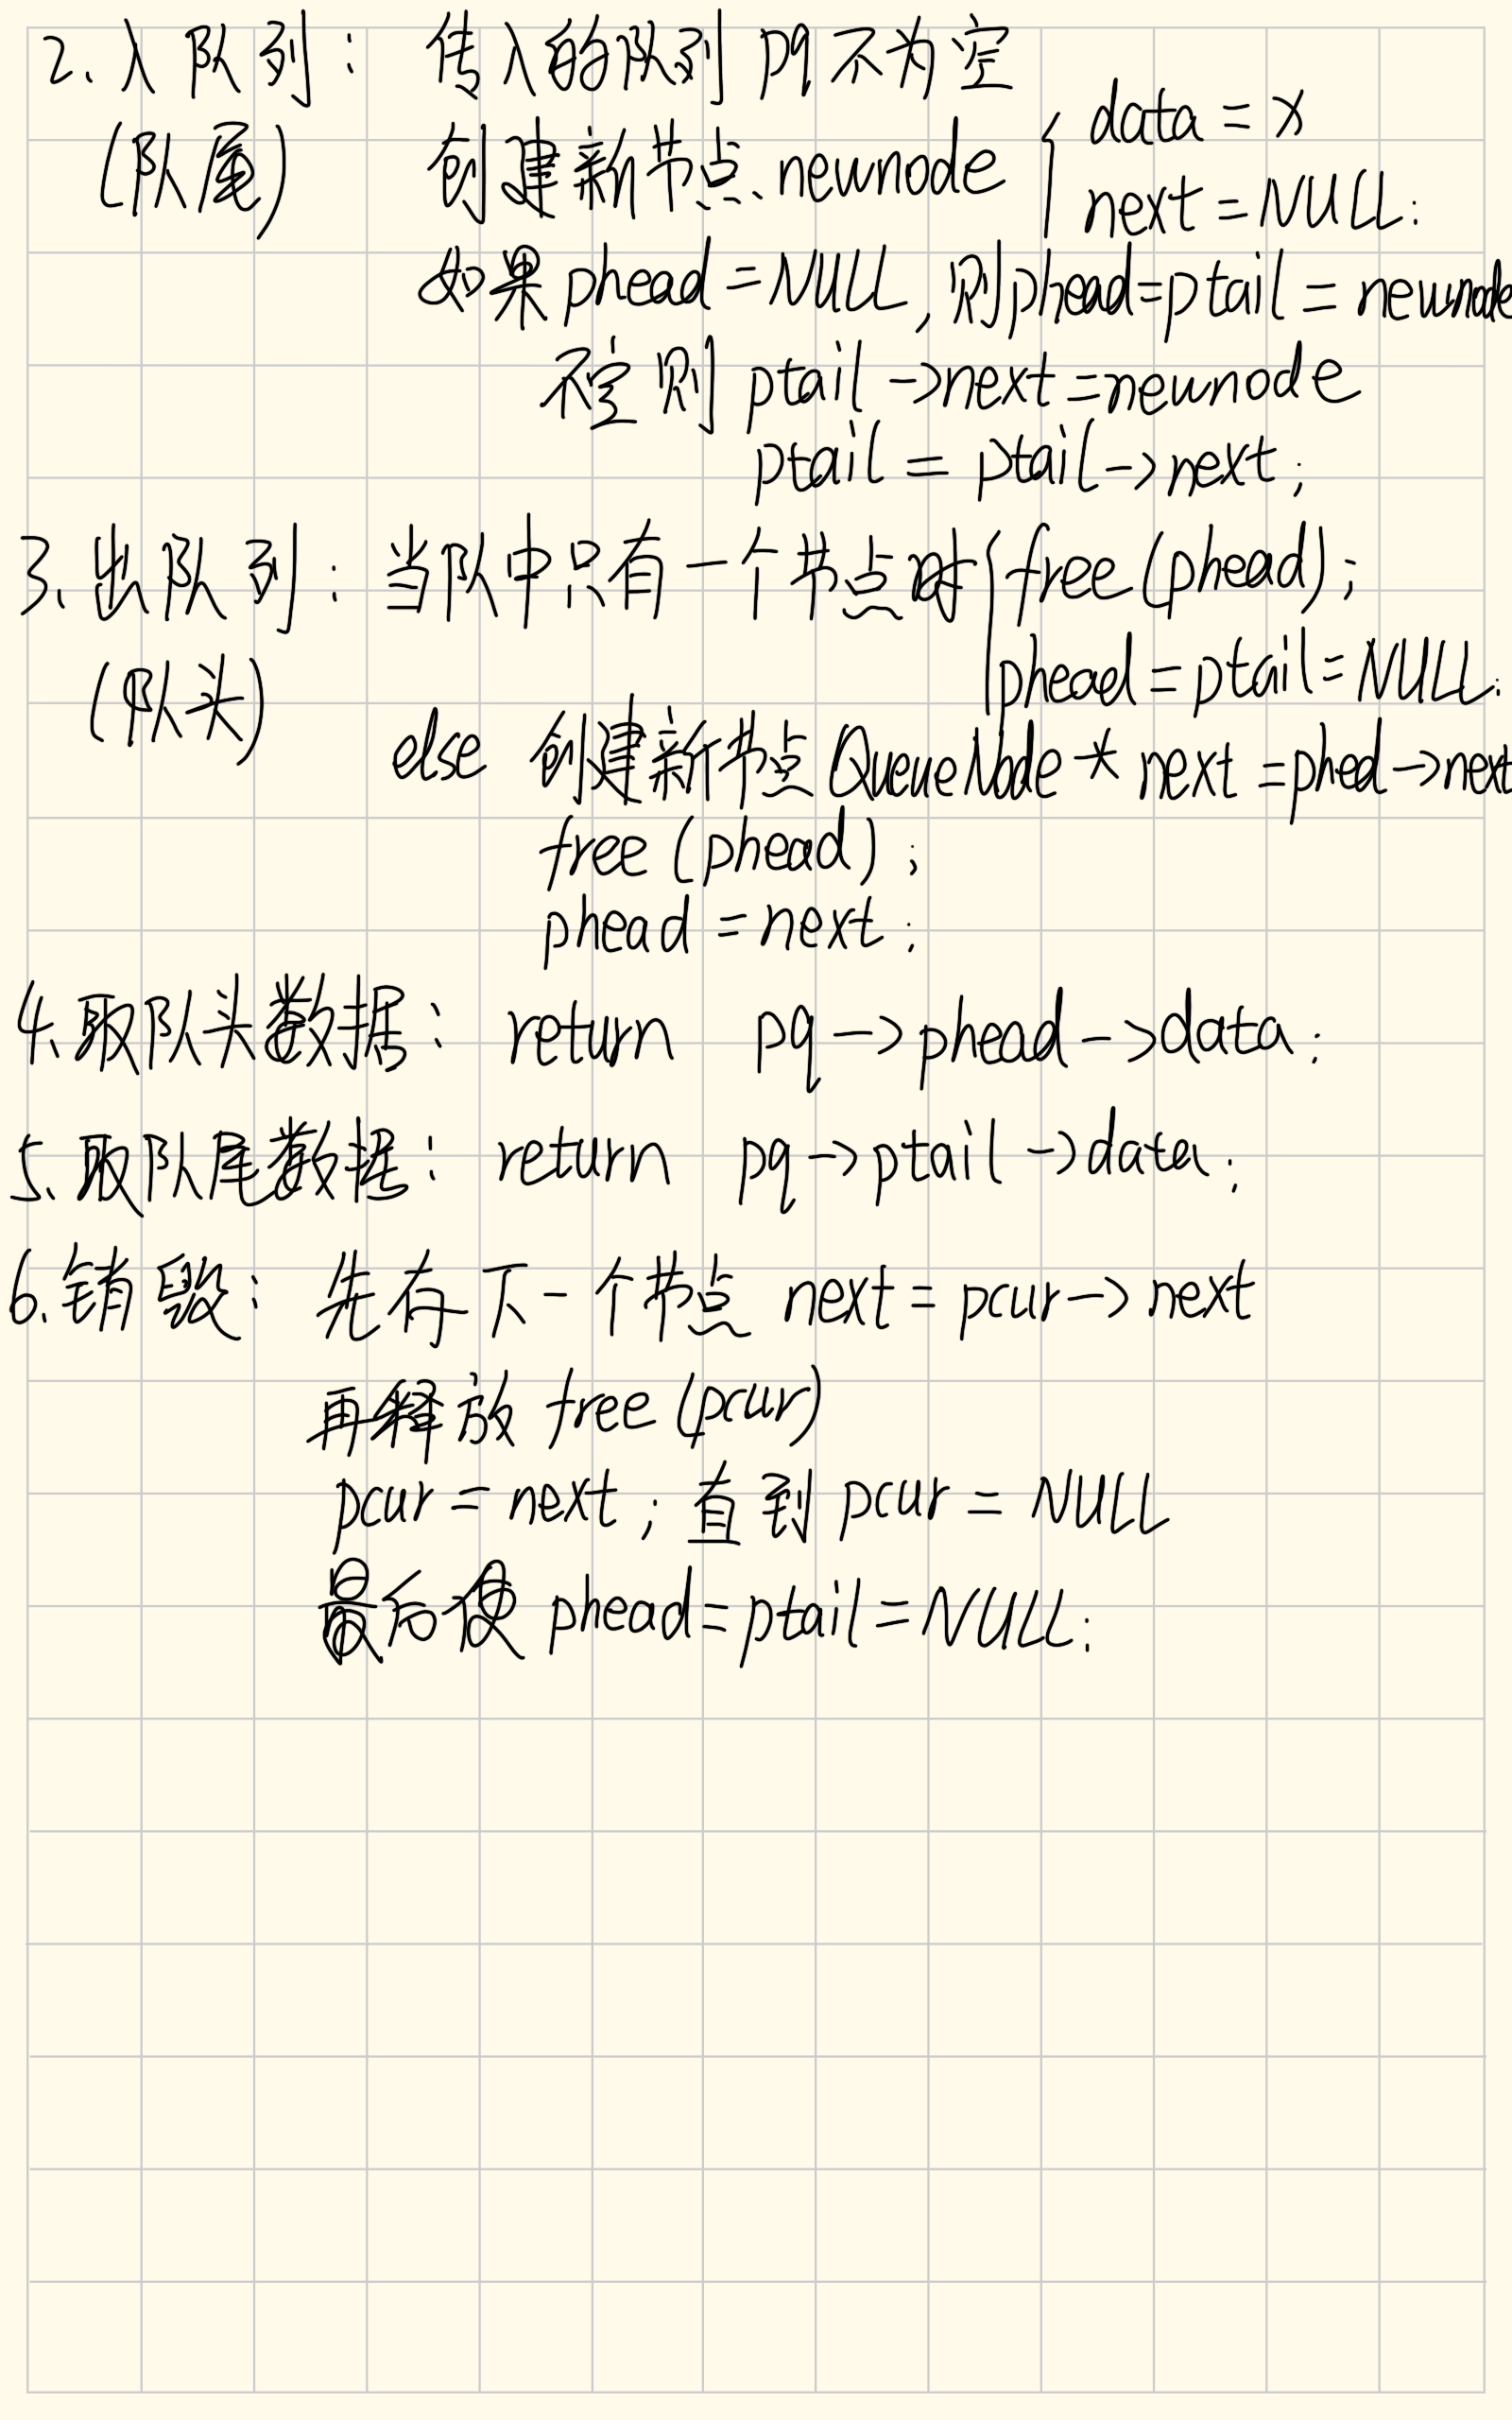 2.入队列：传入的队列 pq 不为空
(队尾) 创建新节点 newnode { data = x
next = NULL;
如果 phead = NULL, 则phead=ptail = newnode
不空则 ptail ->next =newnode
ptail = ptail->next;
3.出队列：当队中只有一个节点时{free(phead);
(队头) phead=ptail=NULL;
else 创建新节点 QueueNode * next =phed->next
free (phead);
phead = next;
4.取队头数据：return pq->phead->data;
5.取队尾数据：return pq->ptail->data;
6.销毁：先存下一个节点 next = pcur-> next
再释放 free (pcur)
pcur = next; 直到 pcur = NULL
最后使 phead=ptail=NULL;